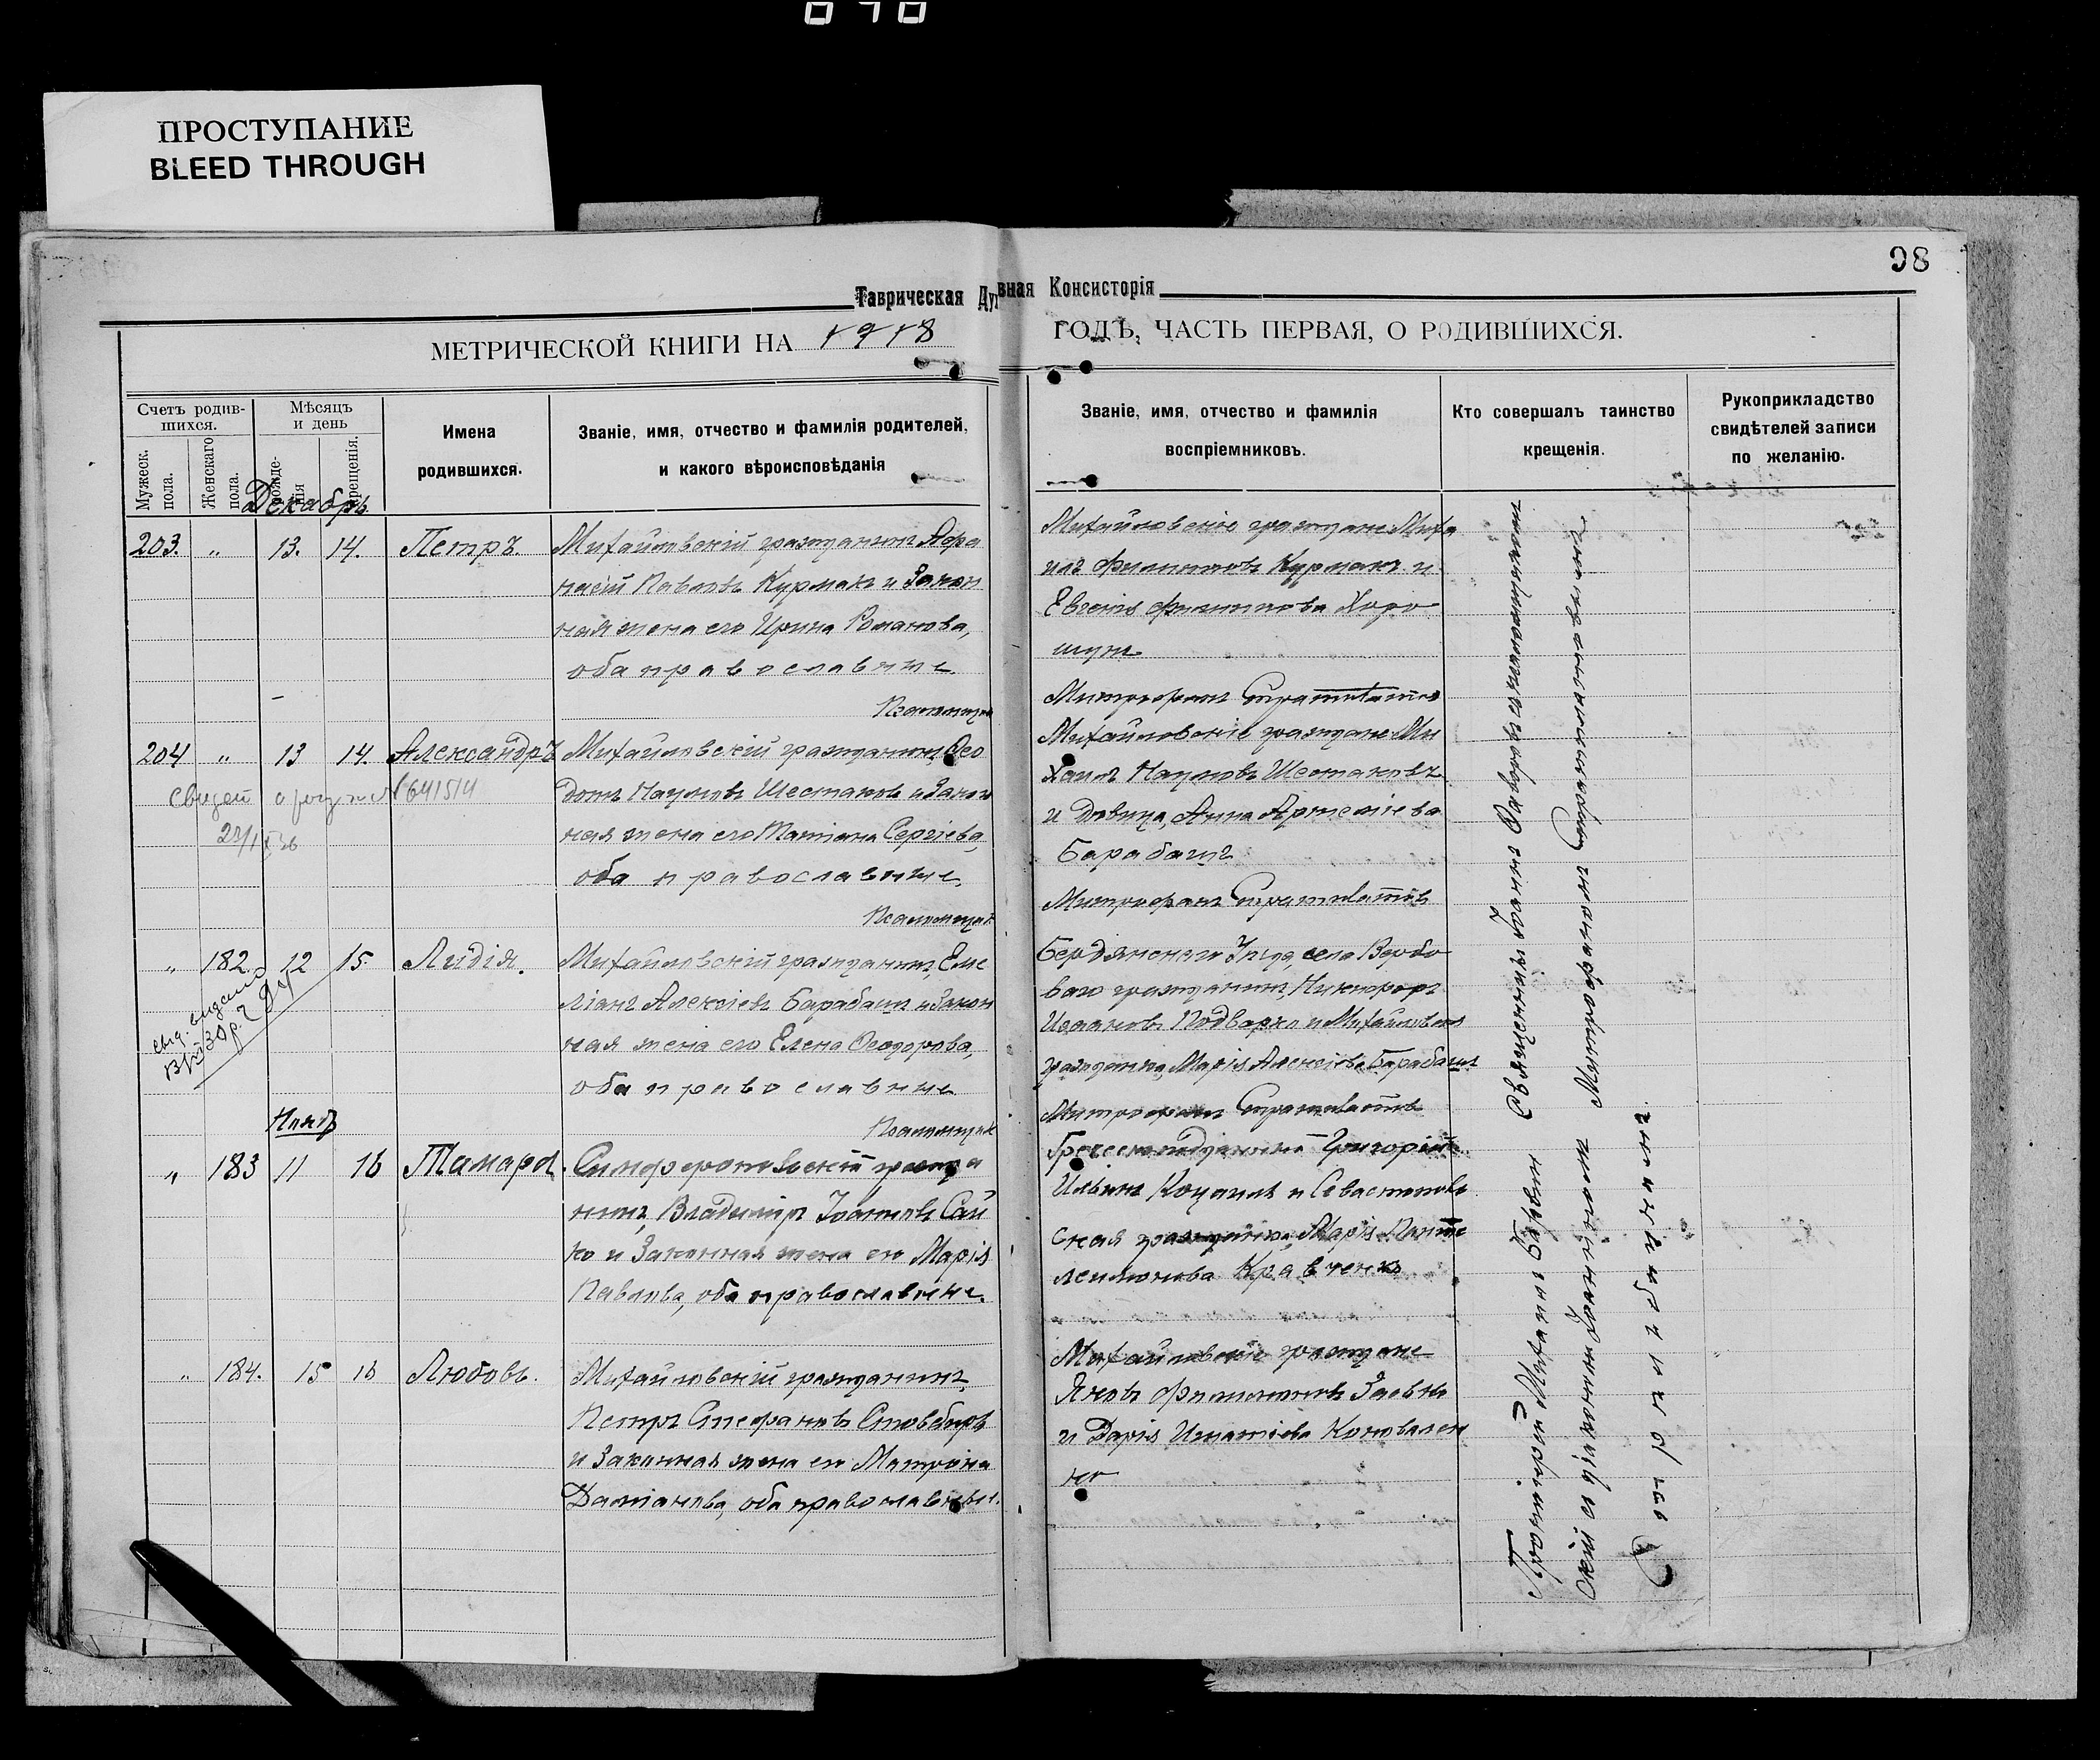 ПРОСТУПАНИЕ
BLEED THROUGH
98
Таврическая Духовная Консисторія
МЕТРИЧЕСКОЙ КНИГИ НА 1918 ГОДЪ, ЧАСТЬ ПЕРВАЯ, О РОДИВШИХСЯ.
Счетъ родив-
шихся.
Мужеск.
пола.
Женскаго
пола.
Мѣсяцъ
и день
рожде-
нія
крещенія.
Имена
родившихся.
Званіе, имя, отчество и фамилія родителей,
и какого вѣроисповѣданія
Званіе, имя, отчество и фамилія
воспріемниковъ.
Кто совершалъ таинство
крещенія.
Рукоприкладство
свидѣтелей записи
по желанію.
Декабрь
203. „ 13. 14. Петръ.
Михайловскій гражданинъ Афа
насій Павловъ Курманъ и Закон
ная жена его Ирина Романова,
оба православные
Псаломщик
Михайловскіе граждане Миха
илъ Филипповъ Курманъ и
Евгенія Филиппова Хоро
шунъ
Митрофанъ
204 „ 13 14. Александръ
Михайловскій гражданинъ Ѳео
дотъ Наумовъ Шестаковъ и Закон
ная жена его Татіана Сергіева,
оба православные.
Псаломщик
Михайловскіе граждане Ми
хаилъ Наумовъ Шестаковъ
и дѣвица, Анна Артеміева
Барабашъ
Митрофанъ
641514
„ 182. 12 15. Лидія.
Михайловскій гражданинъ, Еме
ліанъ Алексіевъ Барабашъ и Закон
ная жена его Елена Ѳеодорова,
оба православные
Псаломщик
Бердянскаго Уѣзда, села Вербо
ваго гражданинъ, Никифоръ
Іоанновъ Подварко и Михайловская
гражданка, Марія Алексіева Барабашъ
Митрофанъ
Нояб
„ 183 11 16 Тамара.
Симферопольскій гражда
нинъ, Владиміръ Іоанновъ Сай
ко и Законная жена его Марія
Павлова, оба православные.
Греческоподданный Григорій
Ильинъ Коцаилъ и Севастополь
ская гражданка, Марія Панте
леимонова Кравченко
„ 184. 15 16 Любовь.
Михайловскій гражданинъ,
Петръ Стефановъ Стовбыръ
и Законная жена его Матрона
Даміанова, оба православные.
Михайловскіе граждане
Яковъ Филимоновъ Заевъ
и Дарія Игнатіева Коновален
ко
Протоіерей Михаилъ Священникъ Іоаннъ